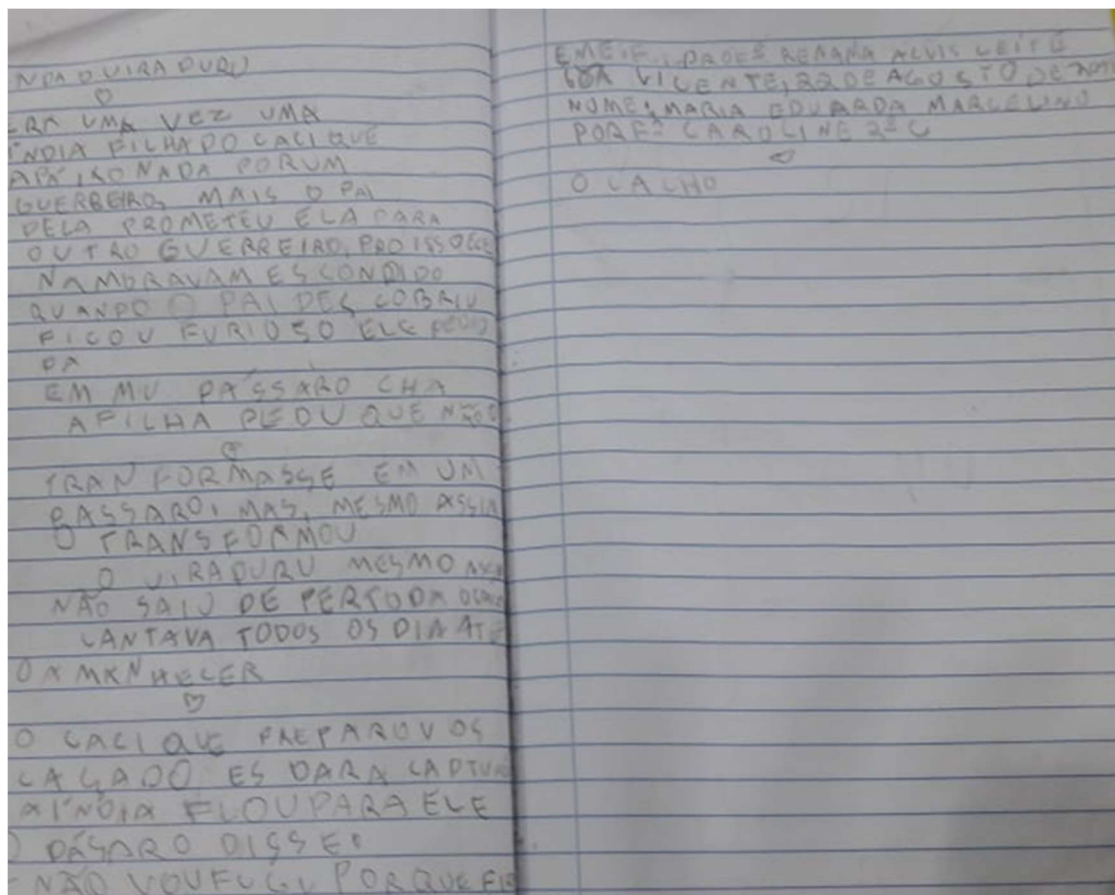 NDA O UIRAPURU
ERA UMA VEZ UMA
ÍNDIA FILHA DO CACIQUE
APAISONADA PORUM
GUERREIRO, MAIS O PAI
DELA PROMETEU ELA PARA
OUTRO GUERREIRO, PROISSO ELE
NAMORAVAM ESCONDIDO
QUANDO O PAI DESCOBRIU
FICOU FURIOSO ELE PEDIU
DA
EM MU PÁSSARO CHA
AFILHA PEDU QUE NÃO
TRANFORMASSE EM UM
PASSARO, MAS, MESMO ASSIM
O TRANSFORMOU
O UIRAPURU MESMO
NÃO SAIU DE PERTODA
CANTAVA TODOS OS DIA ATÉ
O AMANHECER
O CACIQUE PREPAROU OS
CAÇADO ES PARA CAPTU
A ÍNDIA FLOUPARA ELE
O PÁSARO DISSE:
- NÃO VOUFUGI PORQUE
EMEIF. PROFª REGINA ALVIS LEITE
VICENTE, 22 DE AGOSTO DE
NOME: MARIA EDUARDA MARCELINO
PORFª CAROLINE 2º C
O CALHO